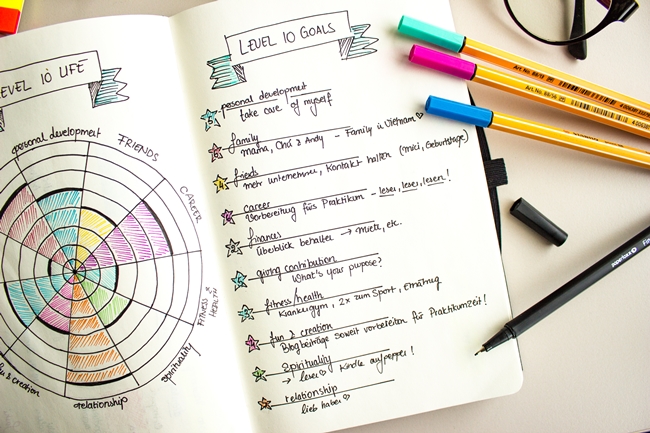 LEVEL 10 LIFE
personal development
FRIENDS
CAREER
FITNESS & HEALTH
spirituality
relationship
fun & creation
LEVEL 10 GOALS
personal development
take care of myself
family
mama, Chris & Andy - Family in Vietnam
friends
mehr unternehmen, Kontakt halten (mici, Geburtstage)
career
Vorbereitung fürs Praktikum - lesen, lesen, lesen!
finances
Überblick behalten → miete, etc.
giving contribution
What's your purpose?
fitness/health
Krankengym, 2x zum Sport, Ernährung
fun & creation
Blogbeiträge soweit vorbereiten für Praktikumzeit!
Spirituality
→ lesen Kindle aufpeppen!
relationship
lieb haben
Art.No. 88/
Art.No. 88/56